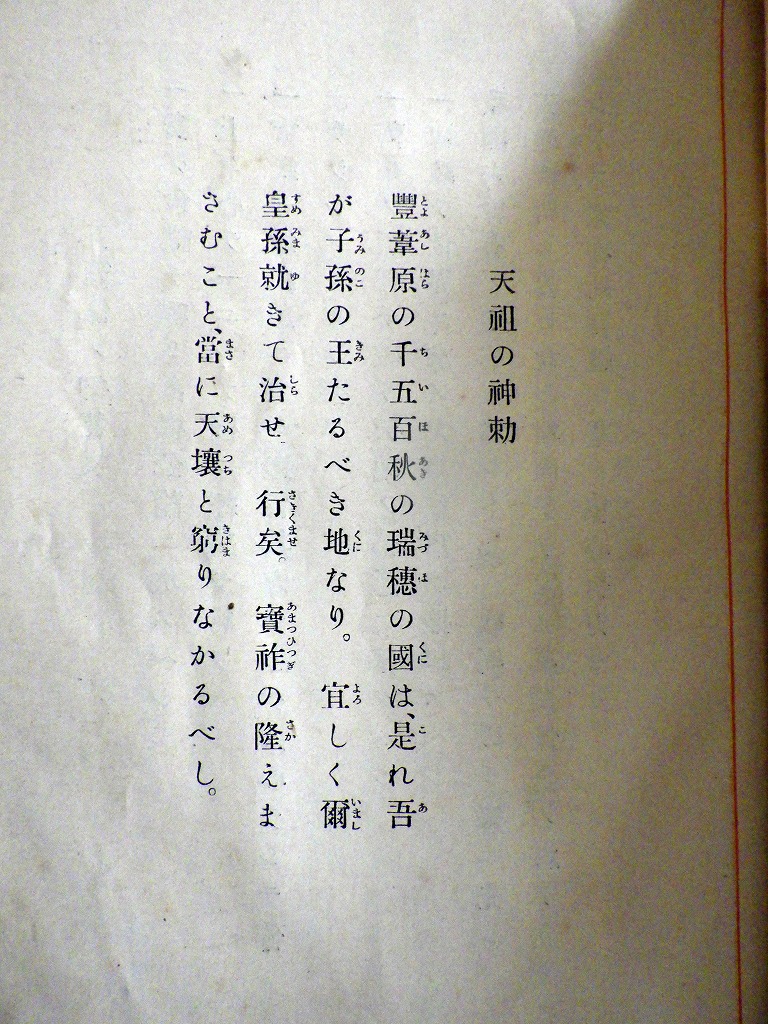 天祖の神勅
豐葦原の千五百秋の瑞穗の國は、是れ吾
が子孫の王たるべき地なり。宜しく爾
皇孫就きて治せ 行矣。寶祚の隆えま
さむこと、當に天壤と窮りなかるべし。